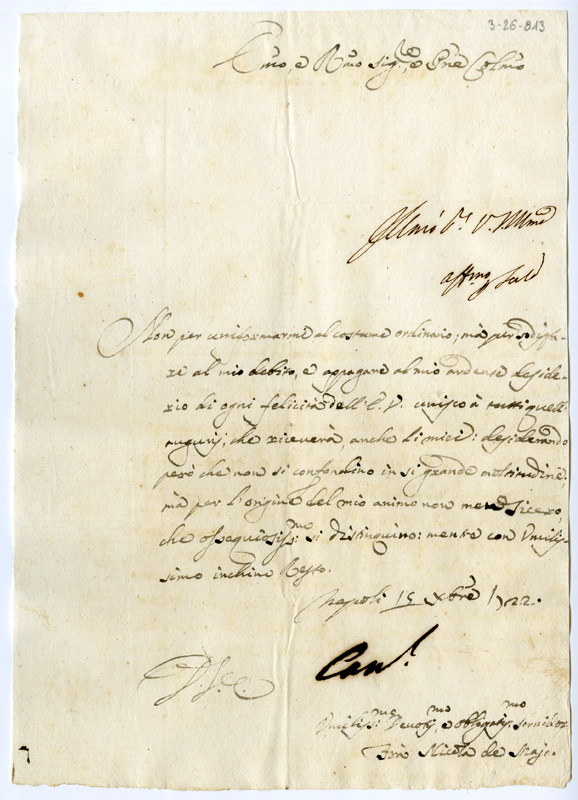 3-26-813
Emo, e Rmo Sig.re, e Pne Colmo
Illmo
affmo
Non per uniformarmi al costume ordinario; mà per sodisfa-
re al mio debito, e appagare al mio ardente deside-
rio di ogni felicità dell'E. V. unisco à tutti quelli
augurij, che riceverà, anche li miei: desiderando
però che non si confondino in si grande moltitudine;
mà per l'origine del mio animo non men sicero,
che ossequiosissmo si distinguino: mentre con Umilis-
simo inchino Resto.
Napoli 15 Xbre 1722.
Umilissmo Devotmo, e obligatmo servidor
Frà Nicola de Majo